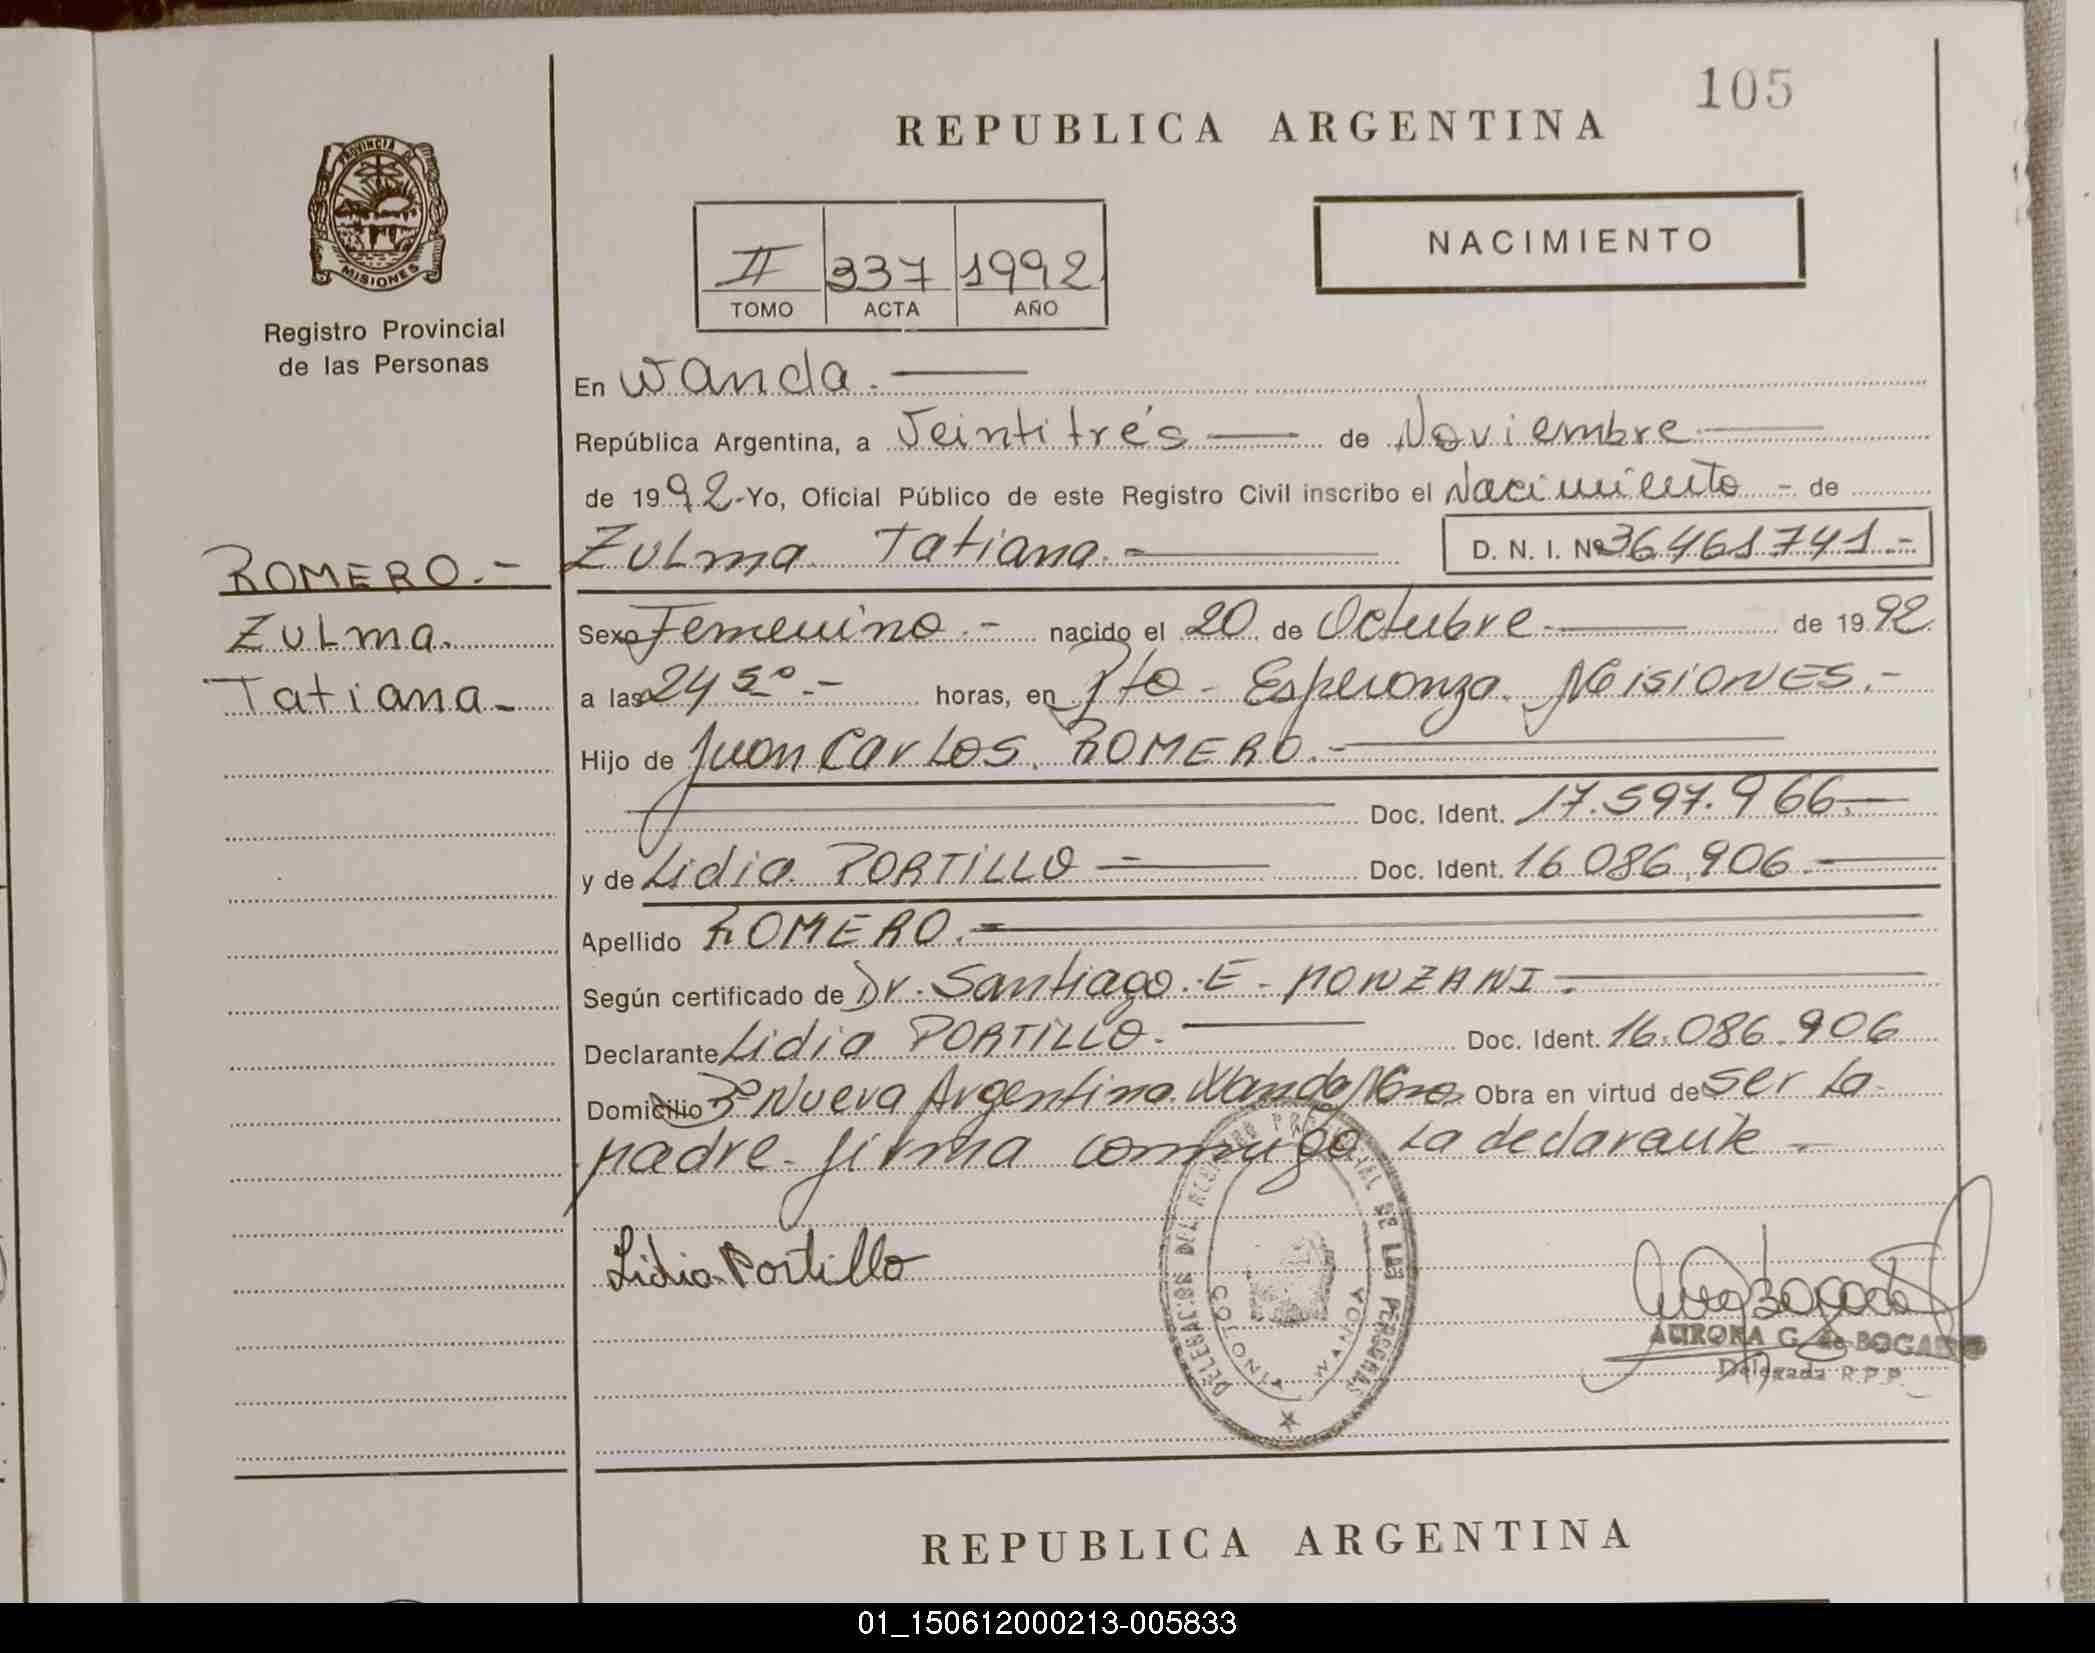 105
REPUBLICA ARGENTINA
PROVINCIA DE
MISIONES
Registro Provincial
de las Personas
NACIMIENTO
II 337 1992
TOMO ACTA AÑO
En Wanda.
República Argentina, a Veintitrés de Noviembre
de 1992-Yo, Oficial Público de este Registro Civil inscribo el Nacimiento - de
Zulma Tatiana.- D. N. I. Nº 36461741.-
ROMERO.-
Zulma
Tatiana-
Sexo Femenino.- nacido el 20 de Octubre de 1992
a las 24 50.- horas, en Pto - Esperanza Misiones.-
Hijo de Juan Carlos ROMERO.-
Doc. Ident. 17.597.966.-
y de Lidia PORTILLO - Doc. Ident. 16.086.906.-
Apellido ROMERO.-
Según certificado de Dr. Santiago E - PONZANI.
Declarante Lidia PORTILLO. Doc. Ident. 16.086.906
Domicilio Bº Nueva Argentina. Wanda Obra en virtud de ser la
madre - firma conmigo la declarante -
Lidia Portillo
DELEGACION DEL REGISTRO PROVINCIAL DE LAS PERSONAS
WANDA
AURORA G. de BOGADO
Delegada R.P.P.
REPUBLICA ARGENTINA
01_150612000213-005833